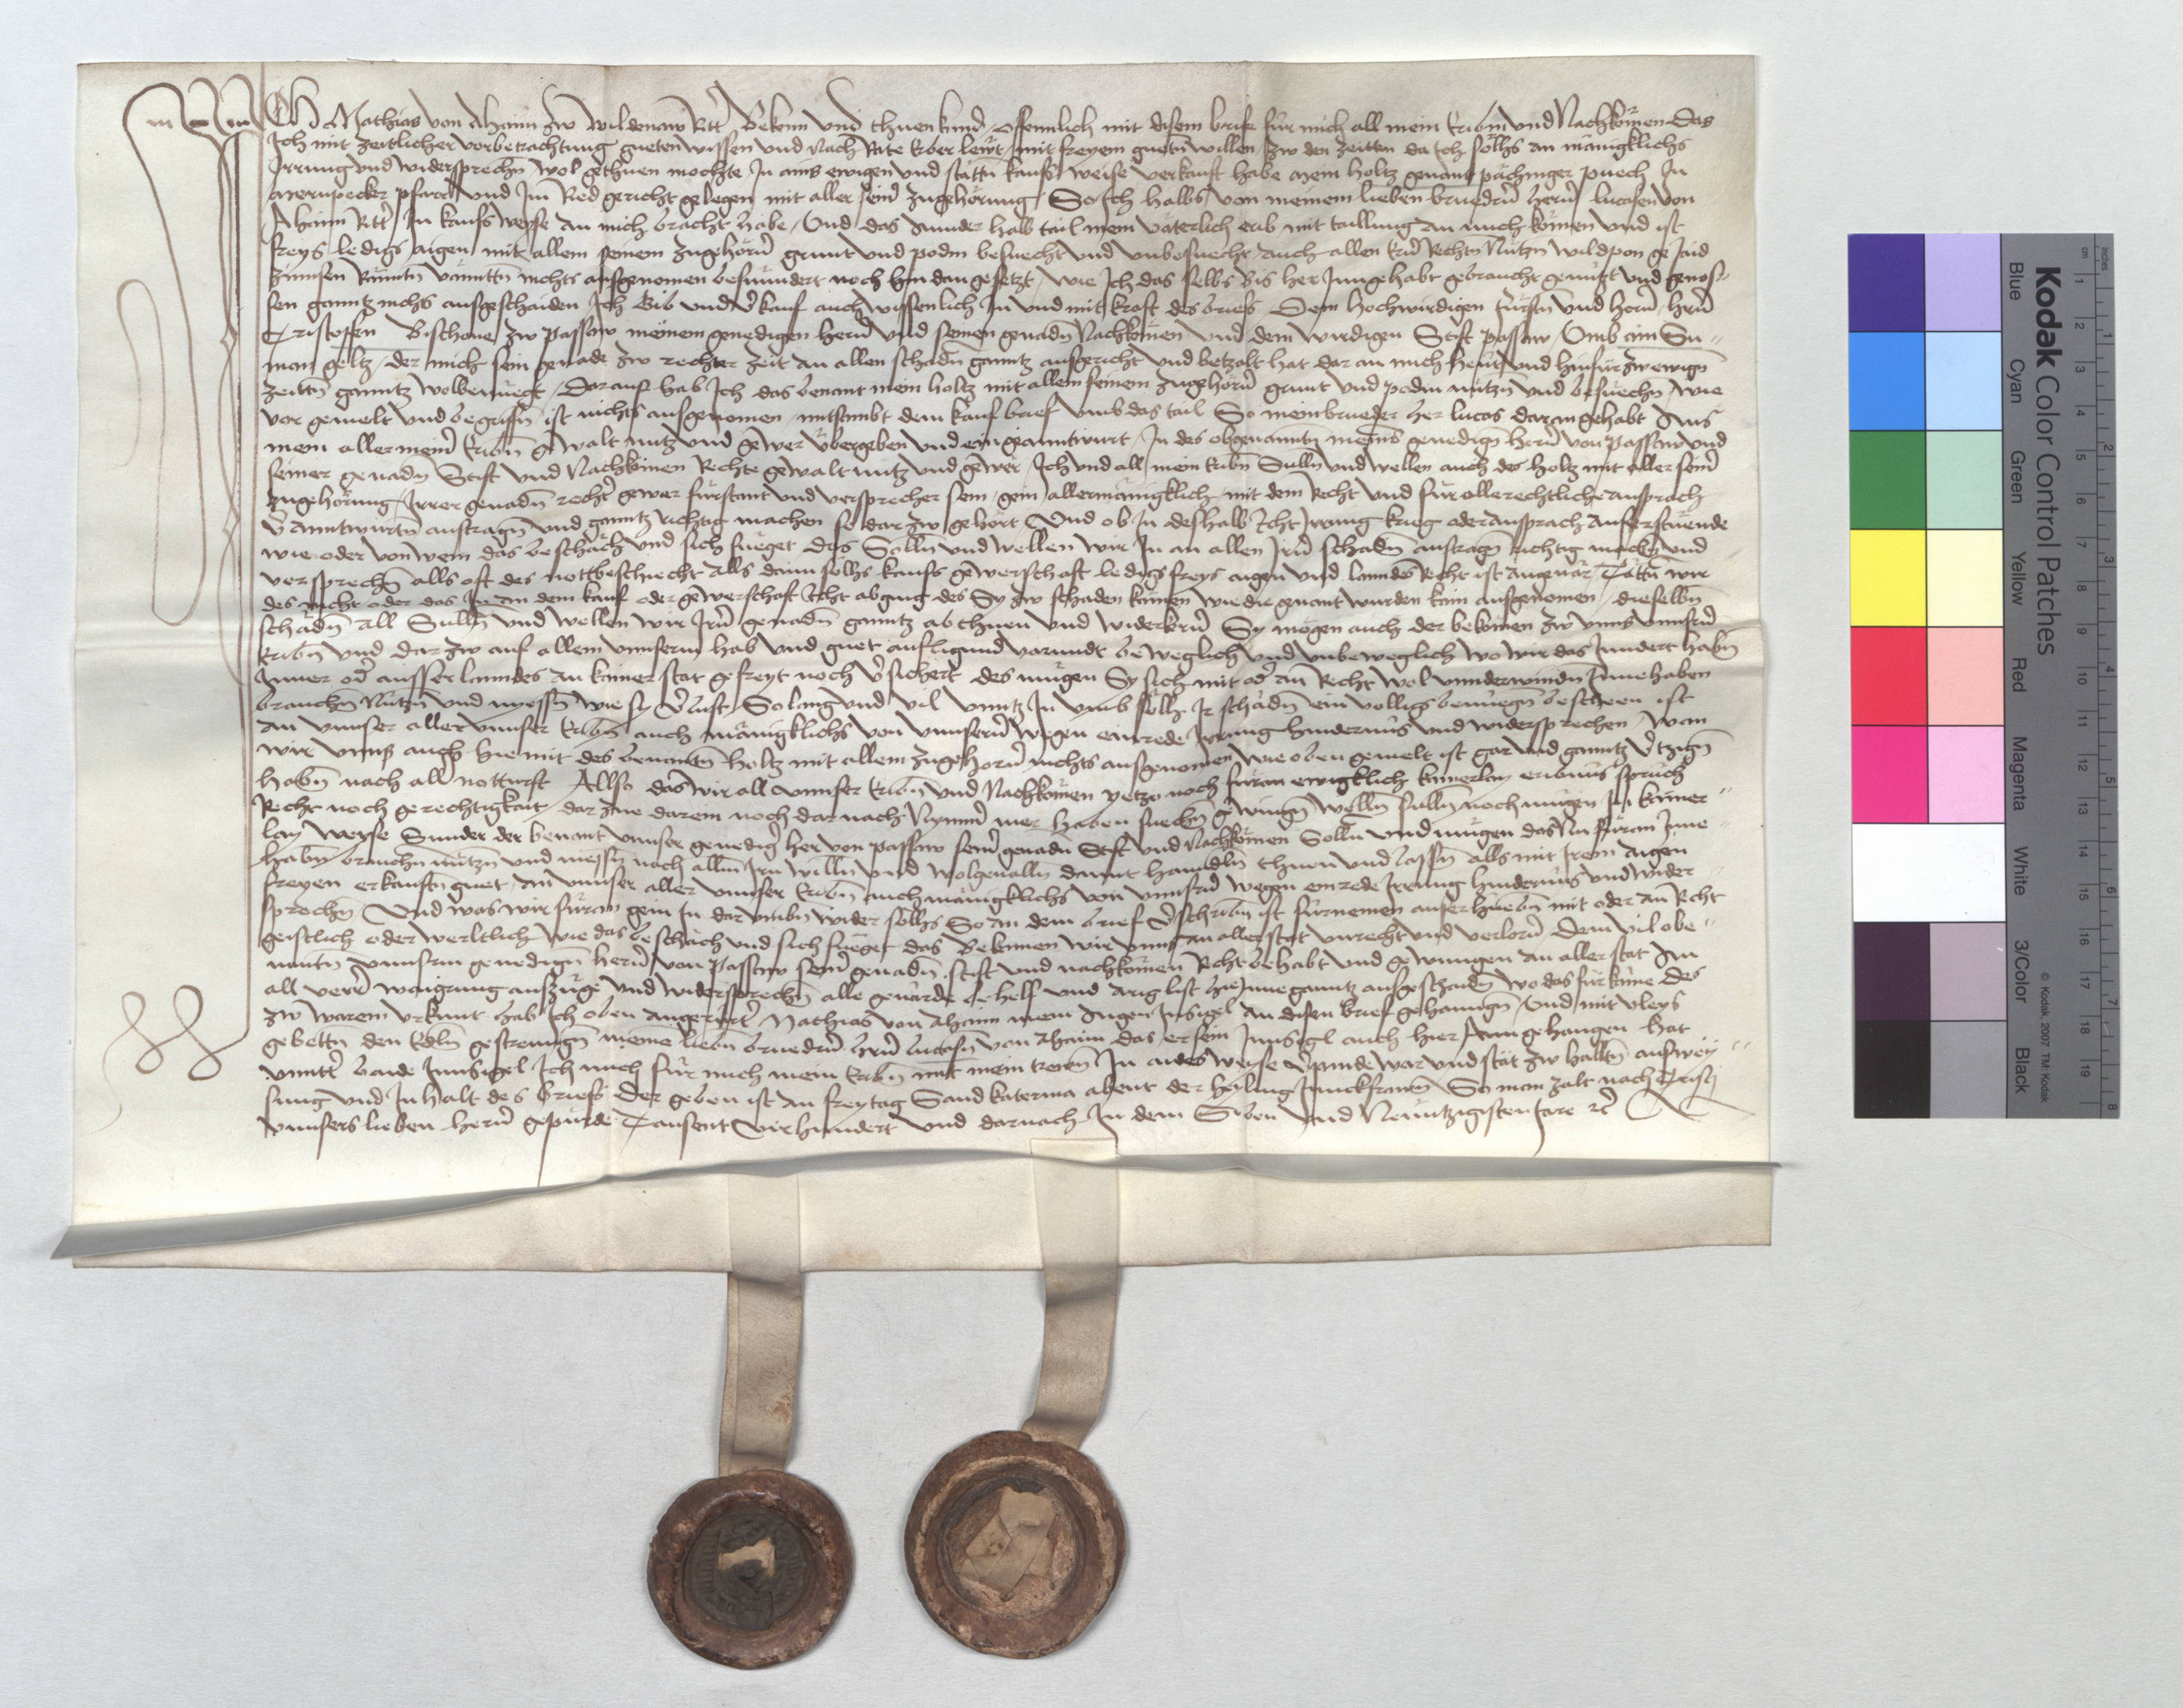 Ich Mathias von Ahaim zw Wildenaw Rtr Bekenn und thuen kund offennlich mit disem briefe für mich all mein Eribm und Nachkomen Das
Ich mit zeitlicher vorbetrachtung gueten wissen und nach Rate Erber lewt mit freyem guetn willen zw den zeitten da Ich sollhs an mänigklichs
Irrung und widersprechn wol gethuen mochte In ains ewigen und stättn kaufs weise verkauft habe mein holtz genant pächinger puech In
pfarr und Im Ried gericht gelegen mit aller seinr zugehörung So Ich halbs von meinem lieben bruedrn herrn lucasen von
Ahaim Rtr In kaufs weyse an mich bracht habe Und das ander halb tail mein väterlich erib mit taillung an mich komen und ist
freys ledigs aigen mit allem seinem zugehörn grunt und podm besuecht und unbesuecht auch allen Ern Rechtn Nützn wildpan ge Jaid
nichts ausgenomen besundert noch hindan gesetzt wie Ich das selbs bis her Inngehabt gebraucht genützt und genos-
sen ganntz nichts ausgeschaiden Ich Gib und vkauf auch wissenlich In und mit kraft des briefs Dem hochwirdigen fürstn und herrn hrn
Cristoffen Bischove zw Passaw meinem genedigen herrn und seinen genadn Nachkomen und dem wirdigen Stift passaw Umb ain Su-
man geltz der mich sein genade zw rechter zeit an allen schadn ganntz ausgericht und betzalt hat dar an mich heut und hinfür zw ewign
zeittn ganntz wolbenuegt Dar auf hab Ich das benant mein holtz mit allem seinem zugehörn grunt und podm nützn und besuechn wie
vor gemelt und begriffn ist nichts ausgenomen mitsambt dem kauf brief umb das tail So mein brueder her lucas daran gehabt Aus
mein aller meinr Eribn gwalt nutz und gewer übergeben und eingeanntwurt In des obgenanntn meins genedign herrn von Passaw und
seiner genadn Stift und Nachkomen Rechte gewalt nutz und gewer Ich und all mein Eribn Sulln und wellen auch des holtz mit aller seinr
zugehörung Irrer genadn rechtr gewer fürstant und versprecher sein gein allermänigklich mit dem Recht und für alle rechtliche ansprach
vanntwurtn austragn und ganntz richtig machen so dar zw gehört Und ob In deshalb icht Irrung krieg oder ansprach auferstuende
wie oder von wem das beschäch und sich fueget das Solln und wellen wir In an allen Irn schadn austragn richtig machn und
versprechn alls oft des nottbeschiecht alls dann sollhs kaufs gewerschaft ledigs freys aigen und lanndes Recht ist angevär Tättn wir
des nicht oder das In an dem kauf oder gewerschaft icht abging des Sy zw schaden kämen wie die genant wurden kain ausgenomen dieselbn
schädn all Sulln und wellen wir Irn genadn ganntz ab thuen und widerkern Sy mögen auch der bekomen zw unns unnsrn
Eribn und dar zw auf allem unnserm hab und guet aufligund varundt beweglich und unbeweglich wo wir das Inndert habn
Inner odr ausser lanndes an kainer stat gefreyt noch vsichert des mügen Sy sich mit odr an Recht wol unnderwindn Innehaben
brauchn Nützn und niessn wie sy vlust So lang und vil unntz In umb sollh Ir schädn ein völligs benüegn bescheen ist
an unnser aller unnser Eribn auch mänigklichs von unnsern wegen einrede Irrung hindernus und widersprechen Wan
wir unns auch hie mit des benantn holtz mit allem zugehorn nichts ausgenomen wie oben gemelt ist gar und ganntz vtzign
habn nach all notturft Allso das wir all unnser Eribn und Nachkomen yetzo noch füran ewigklich kainerlay eribnus spruch
Recht noch gerechtigkait dar zue darein noch dar nach Nymmr mer haben suechn gwingn welln sulln noch mügen In kainer-
lay weyse Sunder der benant unnser genedigr her von passaw seinr genadn Stift und Nachkomen Solln und mügen das Nu füran Inne-
habn brauchn nützn und niessn nach allm Irn willn und wolgevalln damit handln thuen und lassn alls mit Irem aigen
freyen erkauftn guet an unnser aller unnser Eribn auch mänigklichs von unnsrn wegen einrede Irrung hindernus und wider-
sprechn Und was wir füran gein In dar umbn wider sollhs So an dem brief vschribn ist fürnemen auf erhuebn mit oder an Recht
geistlich oder werltlich wie das beschäch und sich fueget das Bekennen wir unns an aller stat unrecht und verlorn Dem vilobe-
nantn unnsrm genedign herrn von Passaw seinr genadn stift und nachkomen Recht behabt und gewungen an aller stat An
all verrer waigrung auszüge und widersprechn alle gevärde behelf und arglist hieInne ganntz ausgeschaidn wo das für käme Des
zw warem urkunt hab Ich oben angerürtr Mathias von Ahaim mein aigen Insigl an disen brief gehanngn Und mit vleys
gebettn den Edln gestrenngn meine liebn bruedrn hrn lucasn von Ahaim das er sein Innsigl auch hier ann gehangen hat
unntr baide Innsigel Ich mich für mich mein Eribn mit mein trewn In aides weyse vpinde war und stät zw halltn ausweÿ-
sung und Inhalt des briefs Der geben ist an freytag Sand katerina abent der heyling Junckfrawn So man zalt nach Cristi
unnsers lieben herrn gepurde Tausent vierhundert und darnach In dem Siben und Neuntzigisten Jare etc
Kodak Color Control Patches
Blue Cyan Green Yellow Red Magenta White 3/Color Black
© Kodak, 2007 TM: Kodak
cm 1 2 3 4 5 6 7 8 9 10 11 12 13 14 15 16 17 18 19
inches 1 2 3 4 5 6 7 8